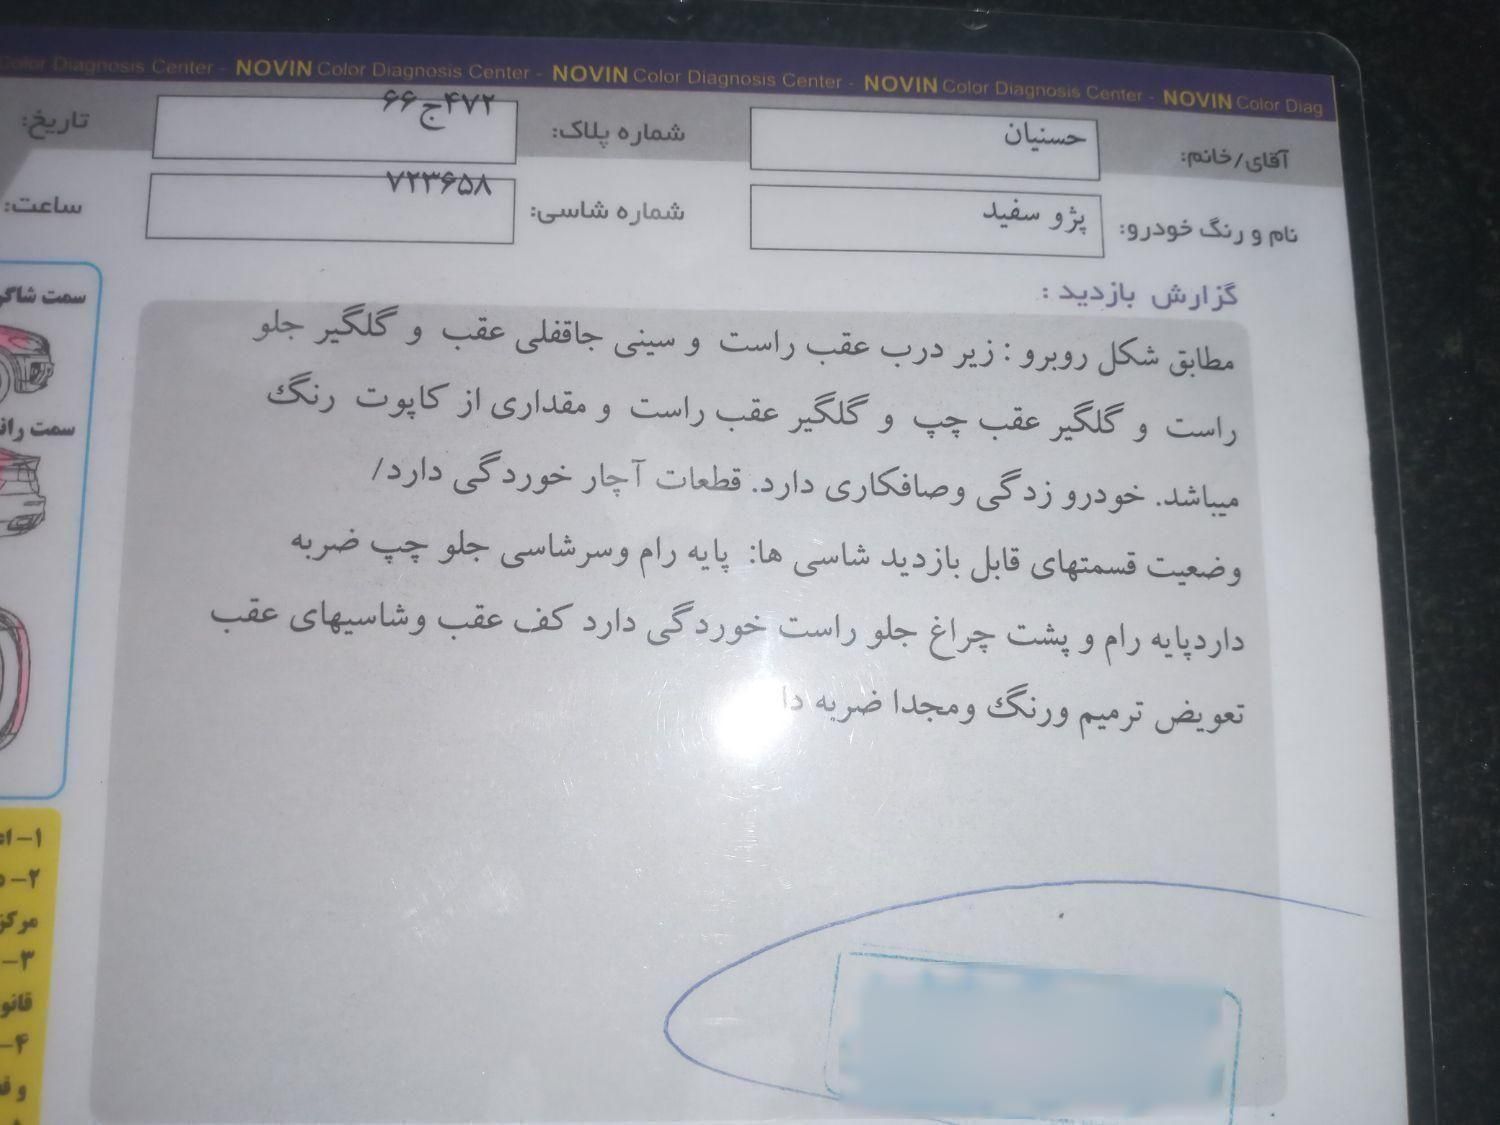 Color Diagnosis Center - NOVIN Color Diagnosis Center - NOVIN Color Diagnosis Center - NOVIN Color Diagnosis Center - NOVIN Color Diag
آقای/خانم: حسنیان شماره پلاک: ۴۷۲ج۶۶ تاریخ:
نام و رنگ خودرو: پژو سفید شماره شاسی: ۷۲۳۶۵۸ ساعت:
گزارش بازدید :
مطابق شکل روبرو : زیر درب عقب راست و سینی جاقفلی عقب و گلگیر جلو
راست و گلگیر عقب چپ و گلگیر عقب راست و مقداری از کاپوت رنگ
میباشد. خودرو زدگی وصافکاری دارد. قطعات آچار خوردگی دارد/
وضعیت قسمتهای قابل بازدید شاسی ها: پایه رام وسرشاسی جلو چپ ضربه
داردپایه رام و پشت چراغ جلو راست خوردگی دارد کف عقب وشاسیهای عقب
تعویض ترمیم ورنگ ومجدا ضربه دا
سمت شاگر
سمت را
۱-
۲-
مرکز
۳-
قانو
۴-